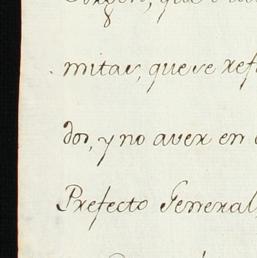 mitas, que se ref
dos, y no aver en
Prefecto General,